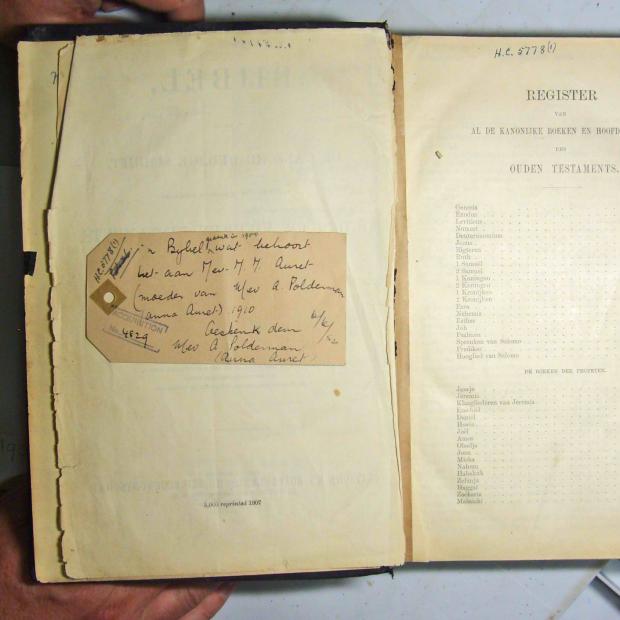 H.C. 5778(1)
'n Bybel, wat behoort
het aan Mev. M. M. Auret
(moeder van Mev A. Polderman
(Anna Auret) 1910
Geskenk deur
Mev A Polderman
(Anna Auret)
ACQUISITION
No. 4829
5,000 reprinted 1907
H.C. 5778(1)
REGISTER
VAN
AL DE KANONIJKE BOEKEN EN HOOFD
DES
OUDEN TESTAMENTS.
Genesis
Exodus
Leviticus
Numeri
Deuteronomium
Jozua
Rigteren
Ruth
1 Samuël
2 Samuël
1 Koningen
2 Koningen
1 Kronijken
2 Kronijken
Ezra
Nehemia
Esther
Job
Psalmen
Spreuken van Salomo
Prediker
Hooglied van Salomo
DE BOEKEN DER PROFETEN.
Jesaja
Jeremia
Klaagliederen van Jeremia
Ezechiël
Daniël
Hosea
Joël
Amos
Obadja
Jona
Micha
Nahum
Habakuk
Zefanja
Haggaï
Zacharia
Maleachi